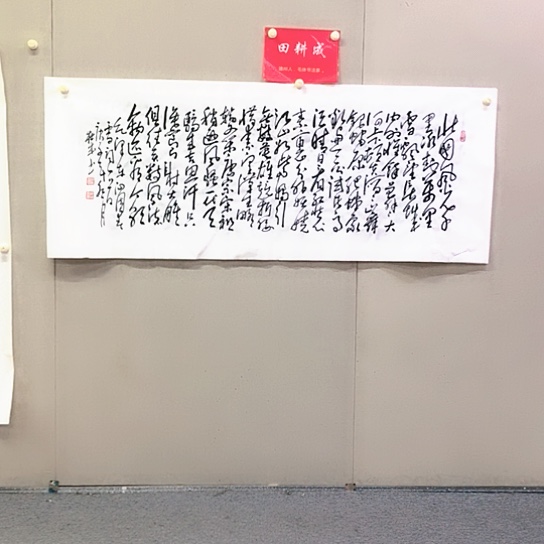 田耕成
北国风光千
里冰封万里
雪飘望长城
内外惟余莽莽大
河上下顿失滔滔山舞
银蛇原驰蜡象
欲与天公试比高
须晴日看红装
素裹分外妖娆
江山如此多娇引
无数英雄竞折腰
惜秦皇汉武略
输文采唐宗宋祖
稍逊风骚一代天
骄成吉思汗只
识弯弓射大雕
俱往矣数风流
人物还看今朝